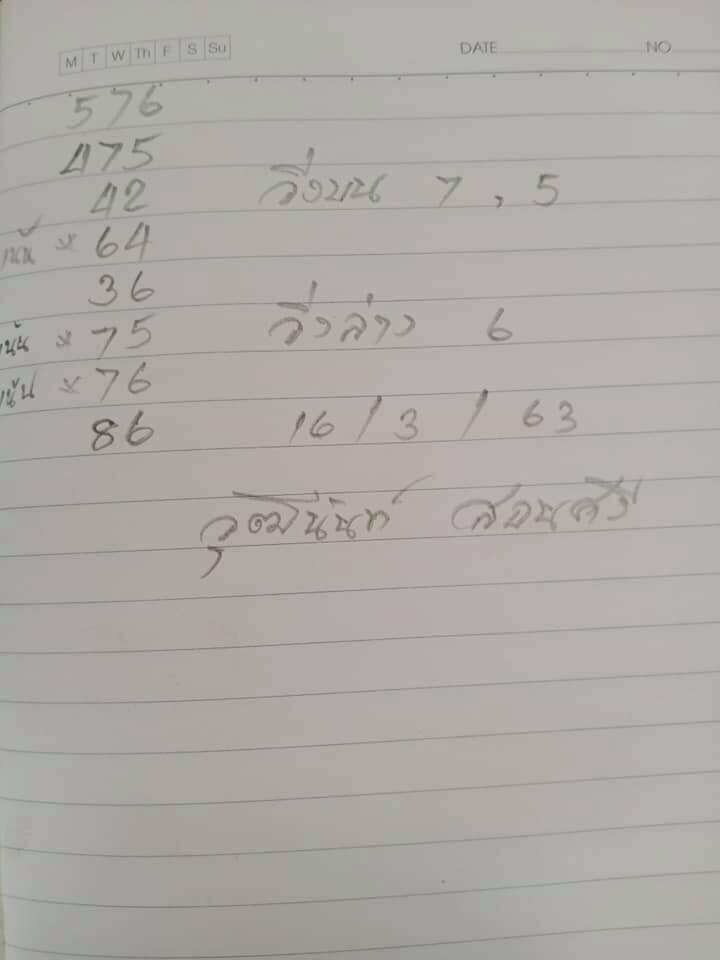 M T W Th F S Su DATE NO
576
475
42 วิ่งบน 7 , 5
เน้น * 64
36
วิ่งล่าง 6
เน้น * 75
เน้น * 76
86 16 / 3 / 63
วุฒินันท์ สอนศรี